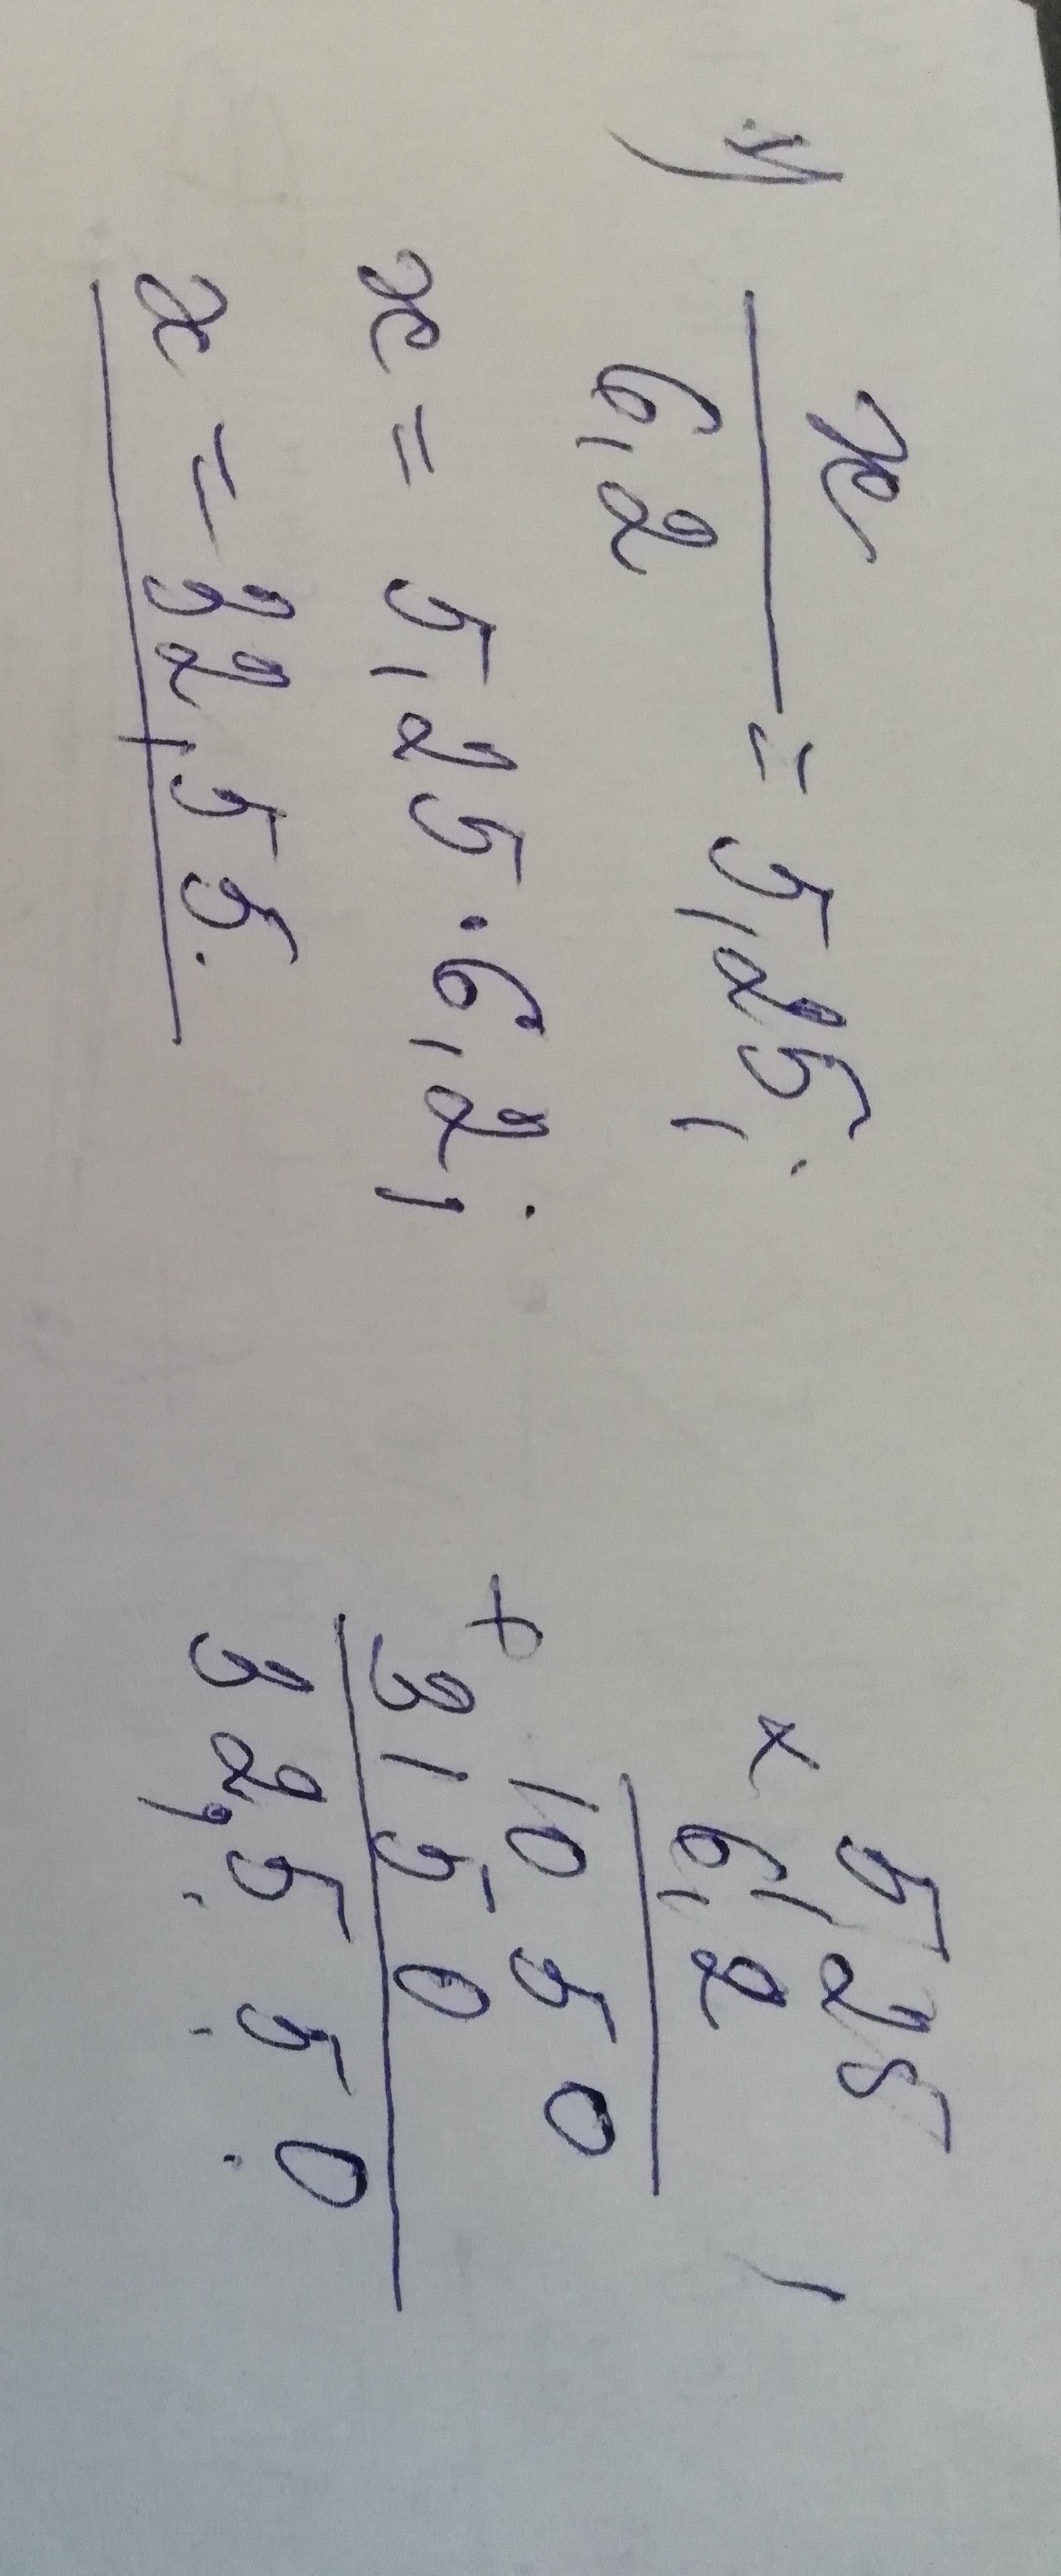 й) x/6,2 = 5,25;
x = 5,25 · 6,2;
x = 32,55.
× 5,25
6,2
+ 1050
3150
32,550